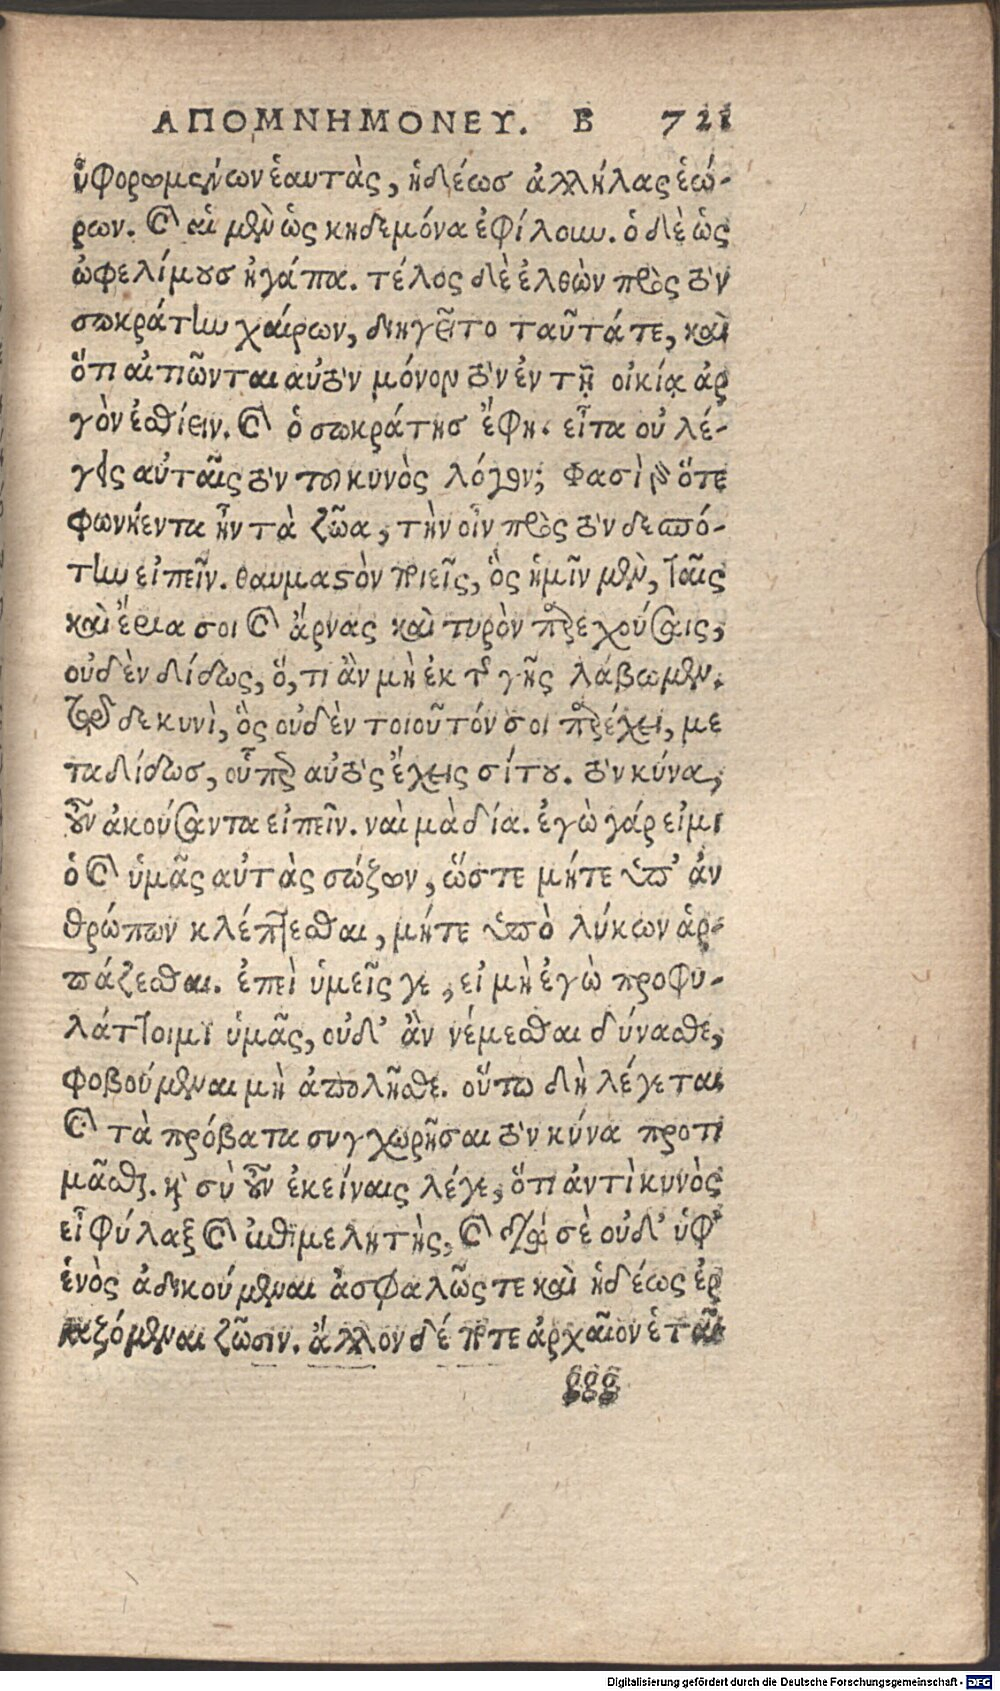 ΑΠΟΜΝΗΜΟΝΕΥ. Β 721
ὑφορωμένων ἑαυτὰς, ἡδέωσ ἀλλήλας ἑώ-
ρων. καὶ αἱ μὲν ὡς κηδεμόνα ἐφίλουν. ὁ δὲ ὡς
ὠφελίμουσ ἠγάπα. τέλος δὲ ἐλθὼν πρὸς τὸν
σωκράτην χαίρων, διηγεῖτο ταῦτά τε, καὶ
ὅτι αἰτιῶνται αὐτὸν μόνον τὸν ἐν τῇ οἰκίᾳ ἀρ
γὸν ἐσθίειν. καὶ ὁ σωκράτησ ἔφη. εἶτα οὐ λέ-
γεις αὐταῖς τὸν τοῦ κυνὸς λόγον; φασὶ γὰρ ὅτε
φωνήεντα ἦν τὰ ζῶα, τὴν οἶν πρὸς τὸν δεσπό-
την εἰπεῖν. θαυμαστὸν ποιεῖς, ὃς ἡμῖν μὲν, ταῖς
καὶ ἔρια σοι καὶ ἄρνας καὶ τυρὸν παρεχούσαις,
οὐδὲν δίδως, ὅ,τι ἂν μὴ ἐκ τῆς γῆς λάβωμεν.
τῷ δε κυνὶ, ὃς οὐδὲν τοιοῦτόν σοι παρέχει, με
ταδίδωσ, οὗπερ αὐτὸς ἔχεις σίτου. τὸν κύνα,
οὖν ἀκούσαντα εἰπεῖν. ναὶ μὰ δία. ἐγὼ γάρ εἰμι
ὁ καὶ ὑμᾶς αὐτὰς σώζων, ὥστε μήτε ὑπ' ἀν
θρώπων κλέπτεσθαι, μήτε ὑπὸ λύκων ἁρ-
πάζεσθαι. ἐπεὶ ὑμεῖς γε, εἰ μὴ ἐγὼ προφυ-
λάττοιμι ὑμᾶς, οὐδ' ἂν νέμεσθαι δύναισθε,
φοβούμεναι μὴ ἀπολῆσθε. οὕτω δὴ λέγεται
καὶ τὰ πρόβατα συγχωρῆσαι τὸν κύνα προτι
μᾶσθαι. καὶ σὺ οὖν ἐκείναις λέγε, ὅτι ἀντὶ κυνὸς
εἶ φύλαξ καὶ ἐπιμελητὴς, καὶ διὰ σὲ οὐδ' ὑφ'
ἑνὸς ἀδικούμεναι ἀσφαλῶς τε καὶ ἡδέως ἐρ
γαζόμεναι ζῶσιν. ἄλλον δέ ποτε ἀρχαῖον ἑταῖ
ggg
Digitalisierung gefördert durch die Deutsche Forschungsgemeinschaft - DFG